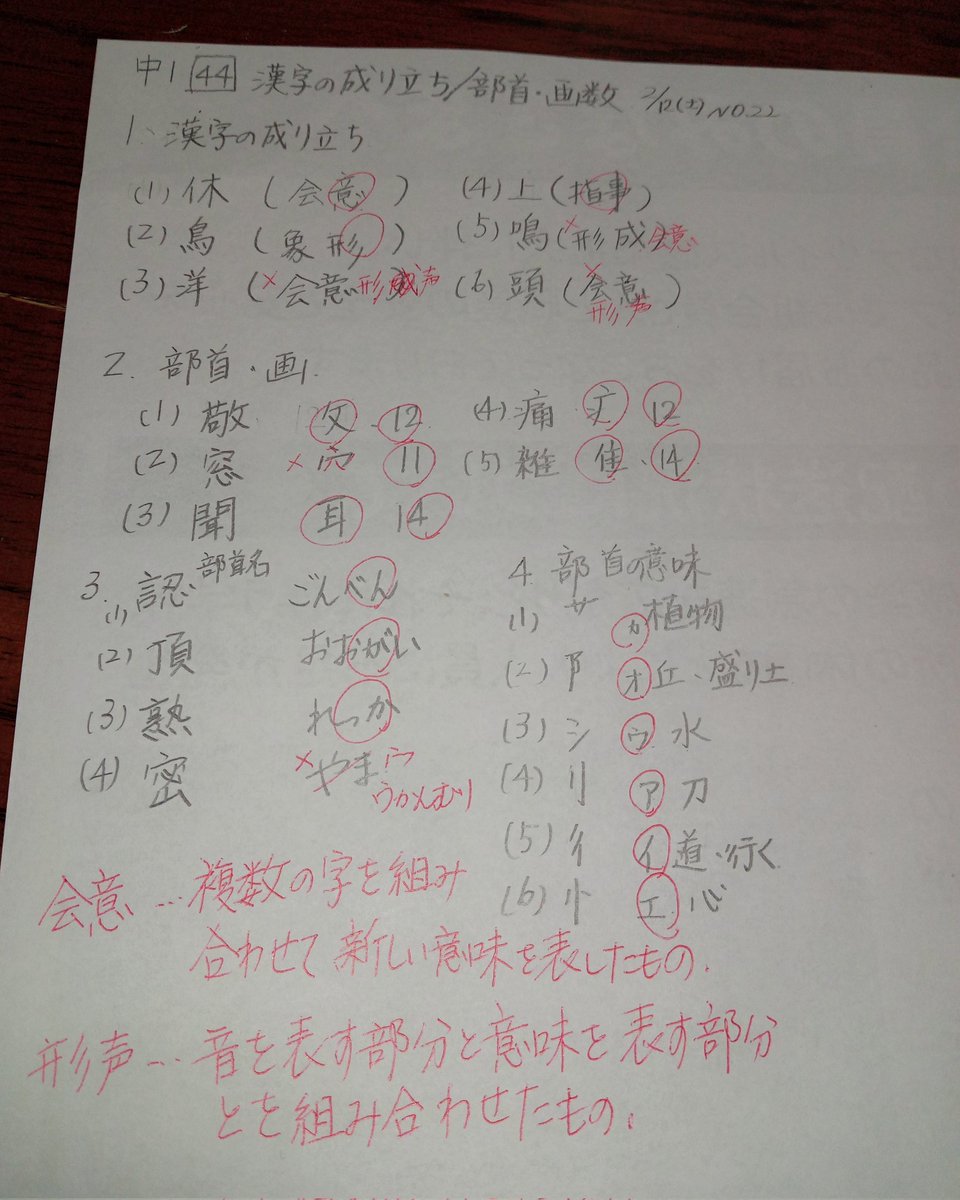 中1 44 漢字の成り立ち/部首・画数 2/12(土) NO.22
1、漢字の成り立ち
(1) 休 (会意) (4) 上 (指事)
(2) 鳥 (象形) (5) 鳴 (×形成 会意
(3) 洋 (×会意 形声 (6) 頭 (×会意) 形声
2. 部首・画
(1) 敬 攵 12 (4) 痛 疒 12
(2) 窓 × 穴 11 (5) 雑 隹、14
(3) 聞 耳 14
3. 部首名
(1) 認 ごんべん
(2) 頂 おおがい
(3) 熟 れっか
(4) 密 ×やま 宀 ウかんむり
4. 部首の意味
(1) 艹 カ 植物
(2) 阝 オ 丘、盛り土
(3) 氵 ウ 水
(4) 刂 ア 刀
(5) 彳 イ 道・行く
(6) 忄 エ 心
会意…複数の字を組み
合わせて新しい意味を表したもの.
形声…音を表す部分と意味を表す部分
とを組み合わせたもの.